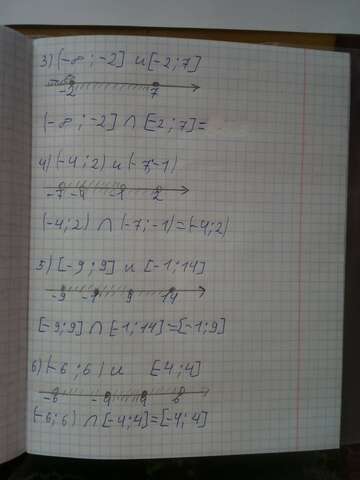 3) (-∞; -2] и [-2; 7]
-2 7
(-∞; -2] ∩ [-2; 7] =
4) (-4; 2) и (-7; -1)
-7 -4 -1 2
(-4; 2) ∩ (-7; -1) = (-4; 2)
5) [-9; 9] и [-1; 14]
-9 -1 9 14
[-9; 9] ∩ [-1; 14] = [-1; 9]
6) (-6; 6) и [-4; 4]
-6 -4 4 6
(-6; 6) ∩ [-4; 4] = [-4; 4]